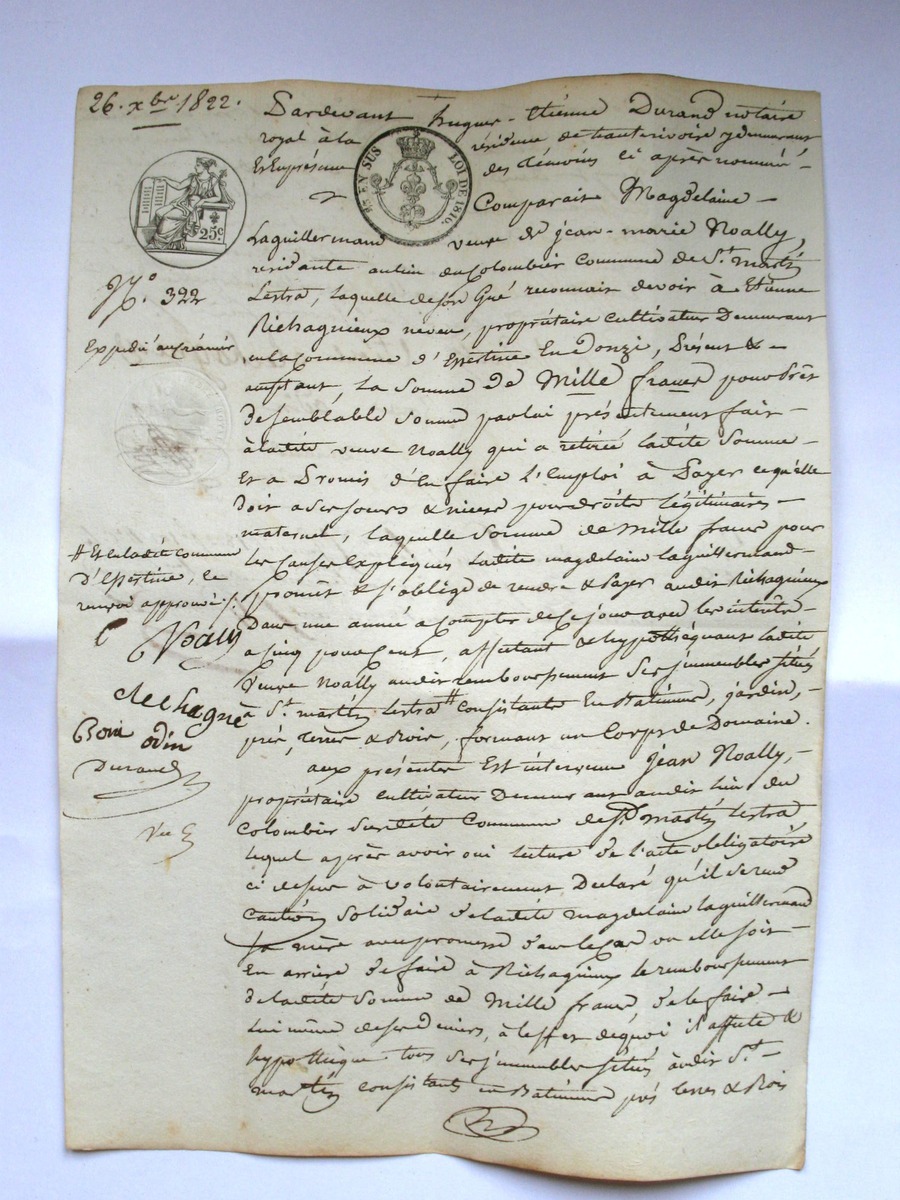 26. xbre 1822.
Pardevant hugues-Etienne Durand notaire
royal à la résidence de hauterivoire y demeurant
Et En présence des Témoins ci après nommés
Comparait Magdelaine
EN SUS LOI DE 1816.
25c.
Laguillermand veuve de jean-marie Noally,
résidante au lieu du Colombier Commune de St. martin
Lestra, laquelle de son Gré reconnait devoir à Etienne
neveu, propriétaire cultivateur Demeurant
en la Commune d'Essertine En Donzi, Présent &
acceptant, la Somme de Mille francs pour prêt
de semblable Somme par lui présentement fait
à ladite veuve Noally qui a retirée ladite Somme
Et a Promis d'En faire l'Emploi à Payer ce qu'elle
doit à ses soeurs & nieces pour droits légitimaires
maternels, laquelle Somme de Mille francs pour
les Causes Expliqués ladite magdelaine laguillermand
promet & s'oblige de rendre & Payer audit
Dans une année à compter de Ce jour avec les intérêts
à cinq pour Cent, affectant & hypothéquant ladite
Veuve Noally audit remboursement Ses immeubles situés
à St. martin Lestra # consistants En Batiments, jardin,
prés, terres & Bois, formant un Corps de Domaine.
aux présentes Est intervenu jean Noally,
propriétaire cultivateur Demeurant audit lieu du
Colombier Susdite Commune de St. martin Lestra
lequel après avoir oui lecture de l'acte obligatoire
ci dessus à volontairement Déclaré qu'il se rend
Caution Solidaire de ladite magdelaine laguillermand
sa mère avec promesse dans le Cas ou elle soit
En arriere de faire à le remboursement
de ladite Somme de Mille francs de le faire
lui même de ses deniers, à l'effet de quoi il affecte &
hypothèque tous Ses immeubles situés audit St.
martin consistants en Batiments prés terres & Bois
No. 322
Expédié au créancier
# Et en la dite commune
d'Essertine, le
renvoi approuvé
Noally
Durand